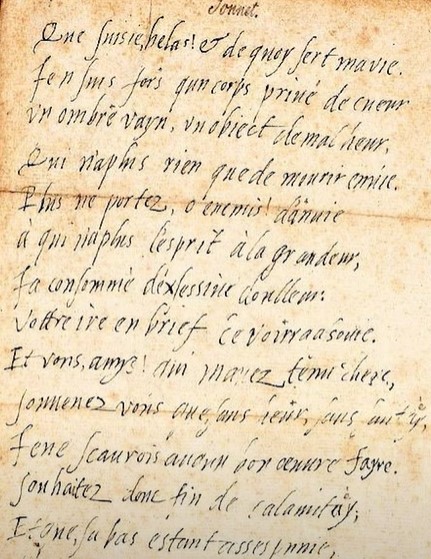 Sonnet.
Que suisie helas! & de quoy sert ma vie.
Je n suis fors qun corps priué de cueur
vn ombre vayn, vn obiect de mal heur,
Qui n'aplus rien que de mourir enuie.
Plus ne portez, o enemis! d'anuie
à qui n'aplus l'esprit à la grandeur,
Ja consommé d'exsessiue doulleur:
Vottre ire en brief ce voirra asouuie.
Et vous, amys! qui m'auez tenu chere,
souuenez vous que sans heur, sans
Je ne scaurois aucun bon œuure fayre.
Souhaitez donc fin de calamitay;
Et que, sa bas estant asses punie,